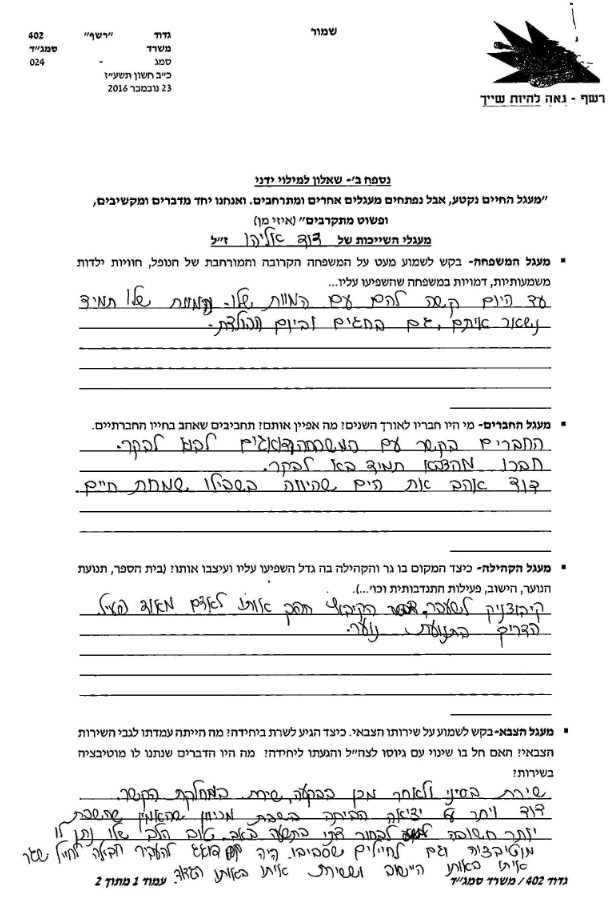 שמור
גדוד "רשף" 402
משרד סמג"ד
סמג - 024
כ"ב חשון תשע"ז
23 נובמבר 2016
רשף - גאה להיות שייך
נספח ב'- שאלון למילוי ידני
"מעגל החיים נקטע, אבל נפתחים מעגלים אחרים ומתרחבים. ואנחנו יחד מדברים ומקשיבים,
ופשוט מתקרבים" (איזי מן)
מעגלי השייכות של דוד אליהו ז"ל
▪ מעגל המשפחה- בקש לשמוע מעט על המשפחה הקרובה והמורחבת של הנופל, חוויות ילדות
משמעותיות, דמויות במשפחה שהשפיעו עליו...
עד היום קשה להם עם המוות שלו. המוות שלו תמיד
נשאר איתם, גם בחגים וביום ההולדת.
▪ מעגל החברים- מי היו חבריו לאורך השנים? מה אפיין אותם? תחביבים שאהב בחייו החברתיים.
החברים בקשר עם המשפחה ודואגים לבוא לבקר.
חברו מהצבא תמיד בא לבקר.
דוד אהב את הים שהיווה בשבילו שמחת חיים.
▪ מעגל הקהילה- כיצד המקום בו גר והקהילה בה גדל השפיעו עליו ועיצבו אותו? (בית הספר, תנועת
הנוער, הישוב, פעילות התנדבותית וכו'...).
קיבוצניק לשעבר. הקיבוץ הפך אותו לאדם מאוד פעיל
הדריך בתנועת נוער.
▪ מעגל הצבא-בקש לשמוע על שירותו הצבאי. כיצד הגיע לשרת ביחידה? מה הייתה עמדתו לגבי השירות
הצבאי? האם חל בו שינוי עם גיוסו לצה"ל והגעתו ליחידה? מה היו הדברים שנתנו לו מוטיבציה
בשירות?
שירת בסיני ולאחר מכן בבקעה, שירת במחלקת הקשר.
דוד ויתר על יציאה הביתה בשבת מכיוון שהאמין שהשבת
יותר חשובה לבחור דתי בתשעה באב. טוב הלב שלו נתן לו
מוטיבציה וגם לחיילים שסביבו. היה דואג להעביר הביאה לחייל שגר
איתו באותו היישוב וששירת איתו באותו הגדוד.
גדוד 402 / משרד סמג"ד
עמוד 1 מתוך 2